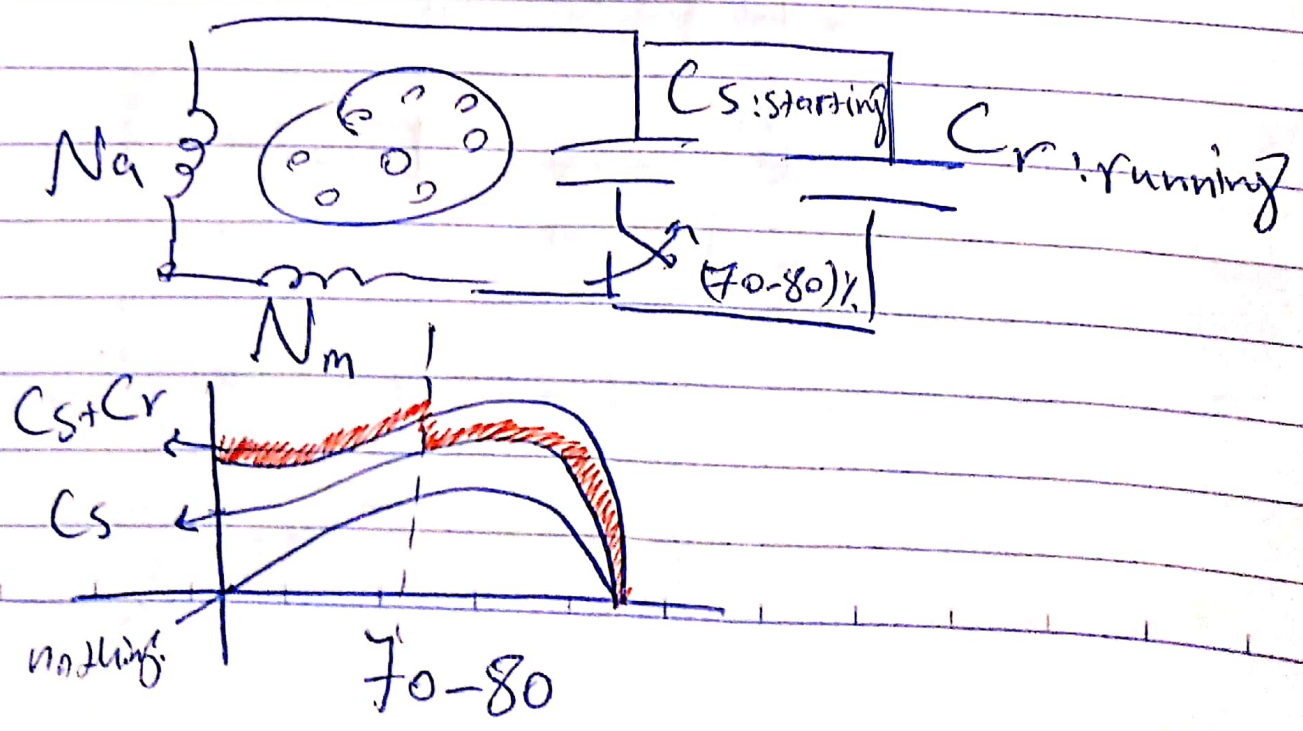 Cs:starting
Cr:running
Na
(70-80)%
Nm
Cs+Cr
Cs
nothing
70-80